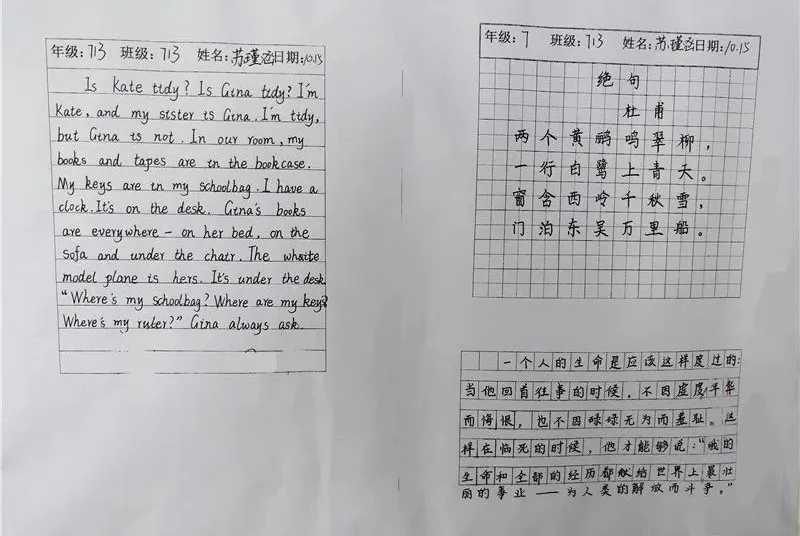 年级:713 班级:713 姓名:苏瑾 日期:10.15
Is Kate tidy? Is Gina tidy? I'm
Kate, and my sister is Gina. I'm tidy,
but Gina is not. In our room, my
books and tapes are in the bookcase.
My keys are in my schoolbag. I have a
clock. It's on the desk. Gina's books
are everywhere - on her bed, on the
sofa and under the chair. The white
model plane is hers. It's under the desk
"Where's my schoolbag? Where are my keys?
Where's my ruler?" Gina always ask.
年级:7 班级:713 姓名:苏瑾 日期:10.15
绝句
杜甫
两个黄鹂鸣翠柳,
一行白鹭上青天。
窗含西岭千秋雪,
门泊东吴万里船。
一个人的生命是应该这样度过的:
当他回首往事的时候,不因虚度年华
而悔恨,也不因碌碌无为而羞耻。这
样在临死的时候,他才能够说:“我的
生命和全部的经历都献给世界上最壮
丽的事业——为人类的解放而斗争。”